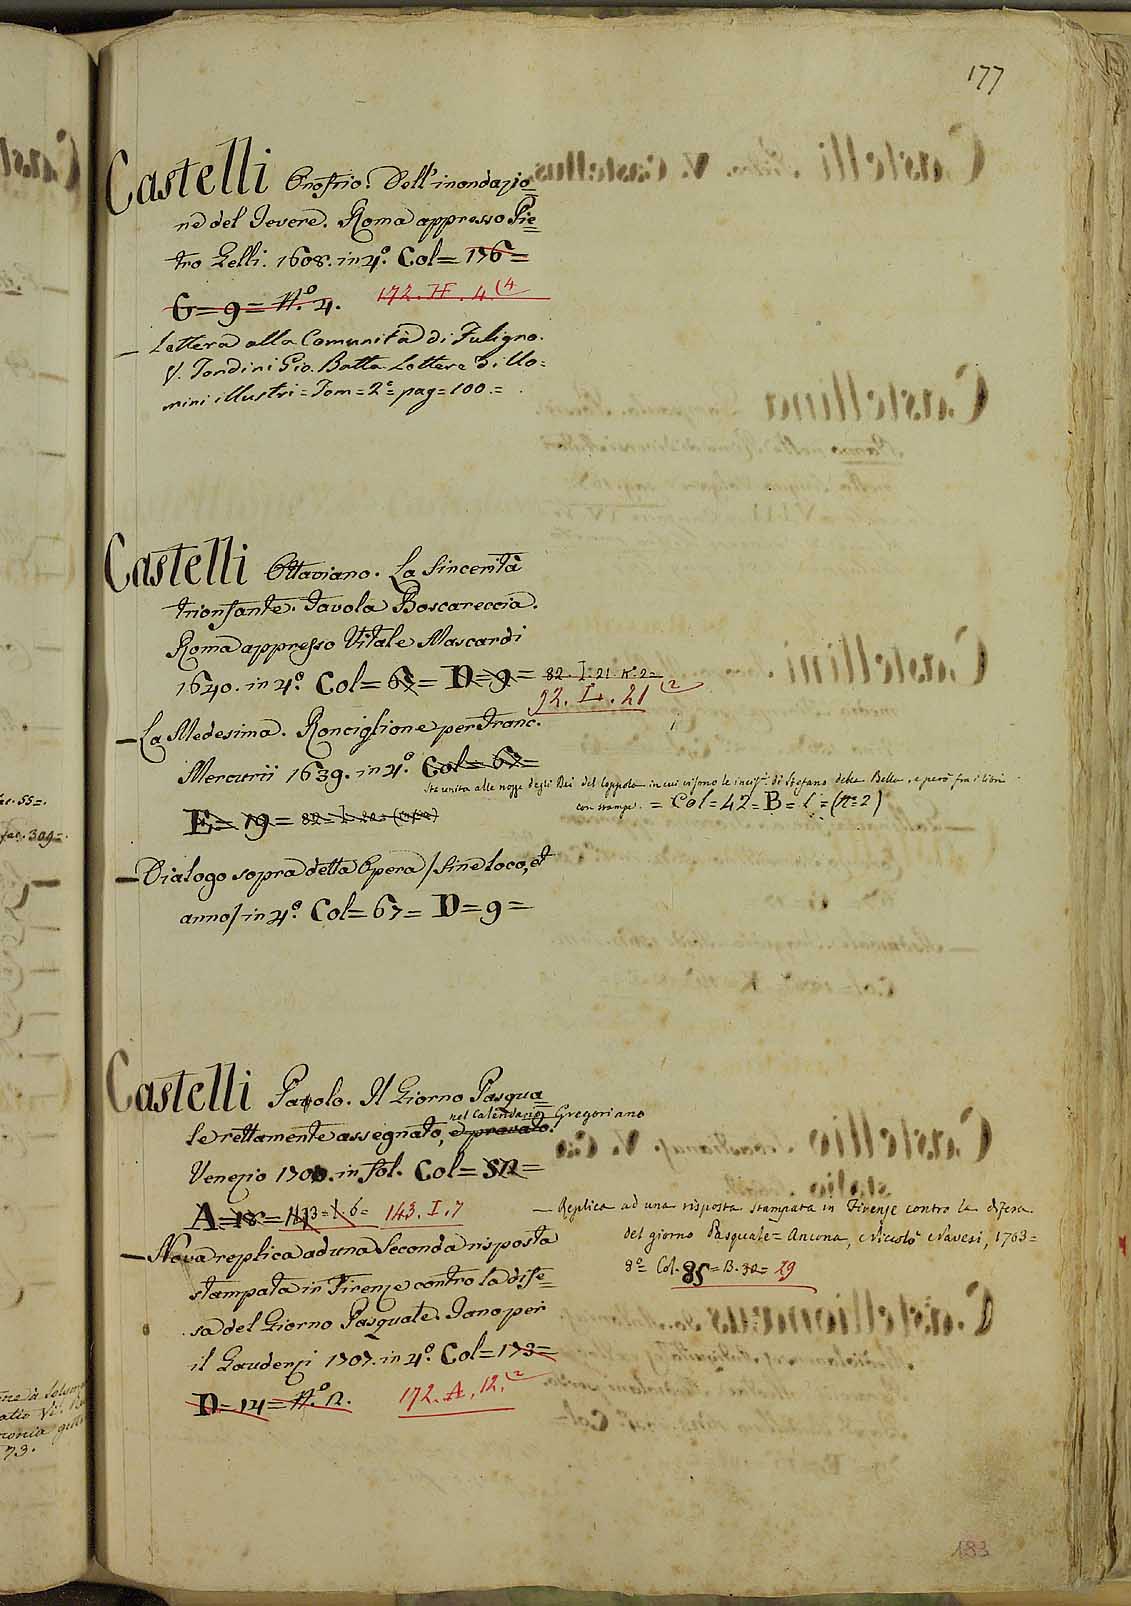 177
Castelli Onofrio. Dell'inondazio=
ne del Tevere. Roma appresso Pie=
tro Lelli. 1608. in 4º. Col= 176=
G= 9= Nº. 4. 172. H. 4.(4
— Lettera alla Comunità di Fuligno.
V. Tondini Gio. Batta. Lettere d'Uo=
mini illustri= Tom= 2º= pag= 100.=
Castelli Ottaviano. La Sincerità
trionfante. Favola Boscareccia.
Roma appresso Vitale Mascardi
1640. in 4º. Col= 67= D=9= 82. I. 21 Nº. 2=
92. I. 21 (2
— La Medesima. Ronciglione per Franc.
Mercurii 1639. in 4º. Col= 67=
Sta unita alle nozze degli Dei del Coppola in cui visono le incisⁱ. di Stefano della Bella, e però fra i libri
con stampe. = Col= 42= B= (nº 2)
E= 19=
— Dialogo sopra detta Opera / sine loco, et
anno / in 4º. Col= 67= D= 9=
Castelli Paolo. Il Giorno Pasqua=
nel Calendario Gregoriano
le rettamente assegnato, e provato.
Venezia in fol. Col=
A= 18= 143. I. 7
— Nova replica ad una Seconda risposta
stampata in Firenze contro la dife=
sa del Giorno Pasquale. Fano per
il Gaudenzi 1707. in 4º. Col= 173=
D= 14= Nº. 2. 172. A. 12.(2
— Replica ad una risposta stampata in Firenze contro la difesa
del giorno Pasquale= Ancona, Niccolò Navesi, 1703=
8º= Col. 85= B. 30= 29
fac. 55=.
fac. 309=.
73.
183